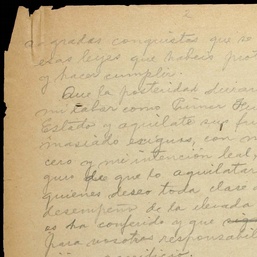 2
sagradas conquistas que se
esas leyes que habeis prot
y hacer cumplir.
Que la posteridad
mi labor como Primer
Estado y aquilate sus fru
masiado exiguos, con
cero y mi intención leal,
que de que lo aquilatar
quienes deseo toda clase
desempeño de la elevada
es ha conferido y que
para vosotros responsabil